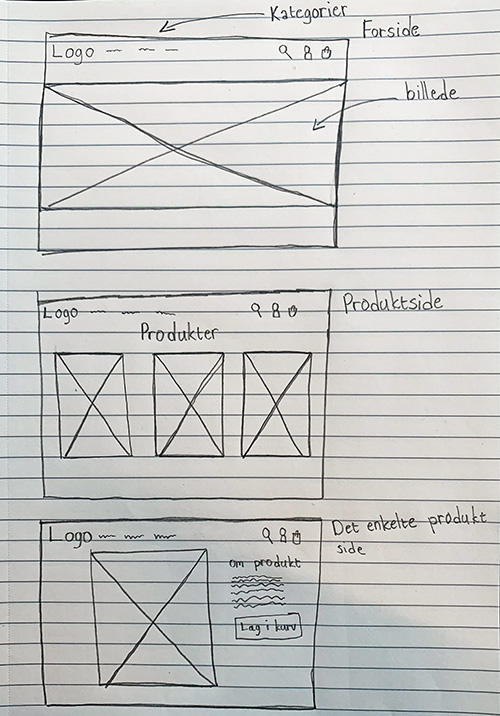 Kategorier
Forside
Logo
billede
Produktside
Logo
Produkter
Det enkelte produkt
side
Logo
om produkt
Lag i kurv